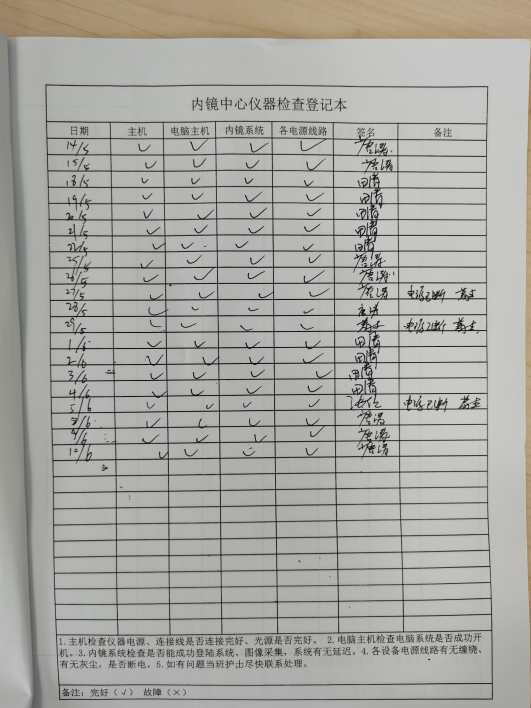 内镜中心仪器检查登记本
日期 主机 电脑主机 内镜系统 各电源线路 签名 备注
14/5 ✓ ✓ ✓ ✓
15/5 ✓ ✓ ✓ ✓
18/5 ✓ ✓ ✓ ✓ 田倩
19/5 ✓ ✓ ✓ ✓ 田倩
20/5 ✓ ✓ ✓ ✓ 田倩
21/5 ✓ ✓ ✓ ✓ 田倩
22/5 ✓ ✓ ✓ ✓ 田倩
25/5 ✓ ✓ ✓ ✓
26/5 ✓ ✓ ✓ ✓
27/5 ✓ ✓ ✓ ✓ 电源已断
28/5 ✓ ✓ ✓ ✓
29/5 ✓ ✓ ✓ ✓ 电源已断
1/6 ✓ ✓ ✓ ✓ 田倩
2/6 ✓ ✓ ✓ ✓ 田倩
3/6 ✓ ✓ ✓ ✓ 田倩
4/6 ✓ ✓ ✓ ✓ 田倩
5/6 ✓ ✓ ✓ ✓ 电源已断
8/6 ✓ ✓ ✓ ✓
9/6 ✓ ✓ ✓ ✓
10/6 ✓ ✓ ✓ ✓
1.主机检查仪器电源、连接线是否连接完好、光源是否完好。 2.电脑主机检查电脑系统是否成功开
机。3.内镜系统检查是否能成功登陆系统、图像采集，系统有无延迟。4.各设备电源线路有无缠绕、
有无灰尘，是否断电。5.如有问题当班护士尽快联系处理。
备注：完好（√） 故障（×）